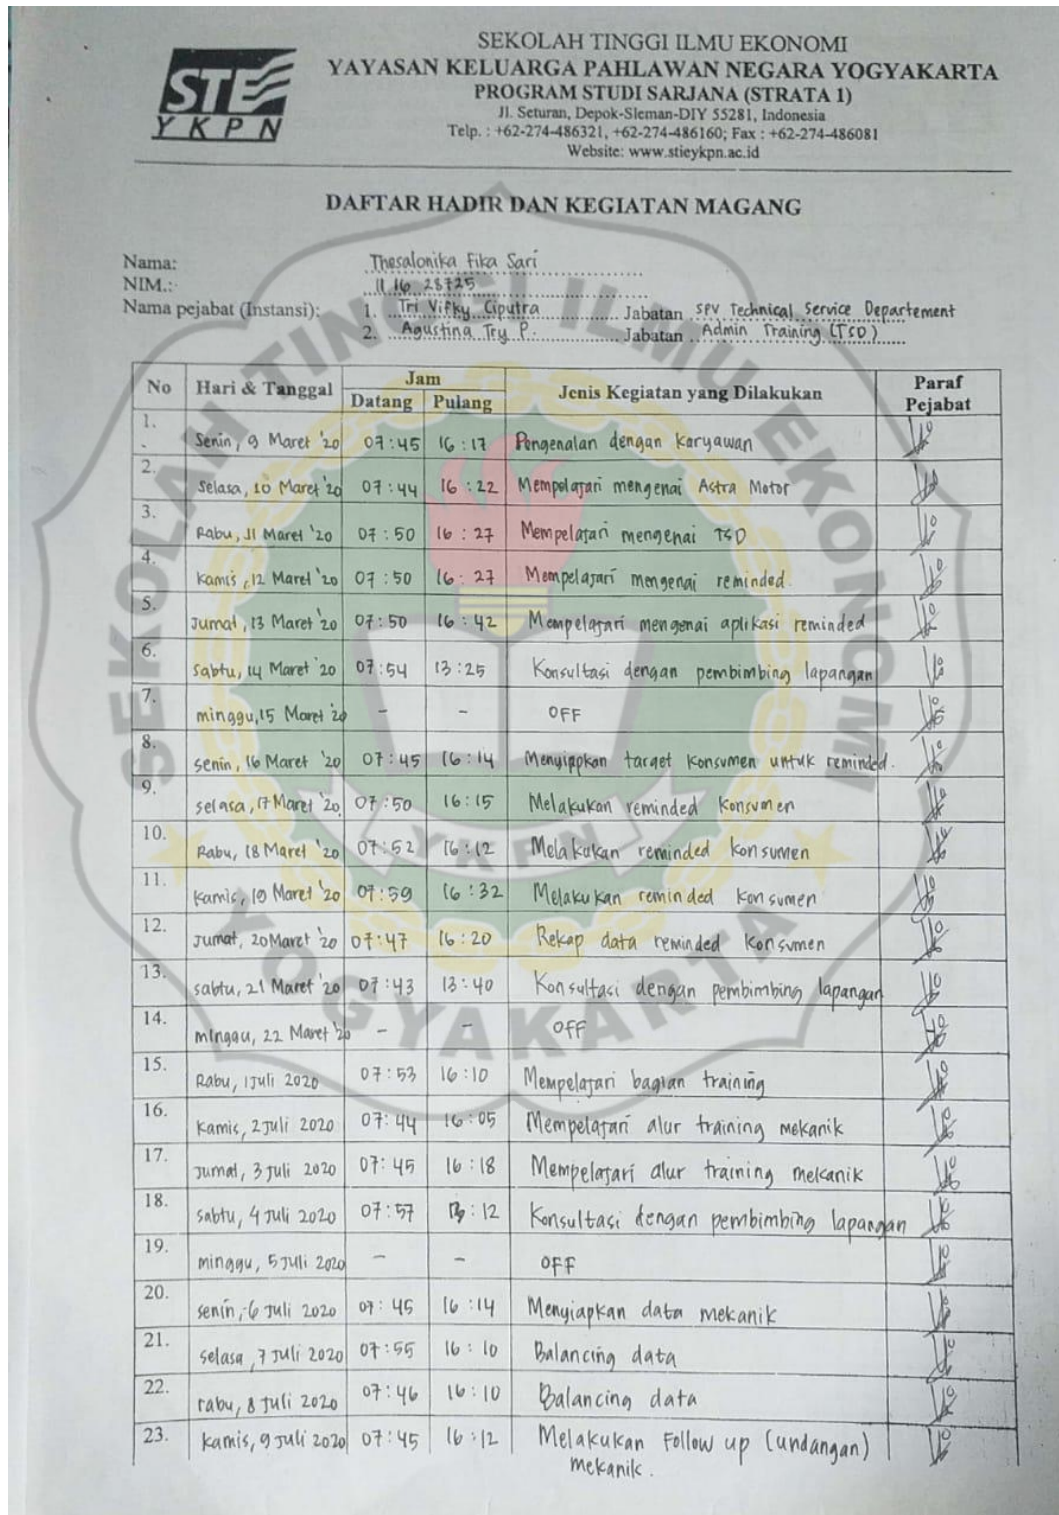 STIE
YKPN
SEKOLAH TINGGI ILMU EKONOMI
YAYASAN KELUARGA PAHLAWAN NEGARA YOGYAKARTA
PROGRAM STUDI SARJANA (STRATA 1)
Jl. Seturan, Depok-Sleman-DIY 55281, Indonesia
Telp. : +62-274-486321, +62-274-486160; Fax : +62-274-486081
Website: www.stieykpn.ac.id
DAFTAR HADIR DAN KEGIATAN MAGANG
Nama: Thesalonika Fika Sari
NIM.: 11 16 28725
Nama pejabat (Instansi): 1. Tri Vifky Ciputra Jabatan SPV Technical Service Departement
2. Agustina Try P. Jabatan Admin Training (TSD)
No Hari & Tanggal Jam Jenis Kegiatan yang Dilakukan Paraf Pejabat
Datang Pulang
1. Senin, 9 Maret '20 07:45 16:17 Pengenalan dengan karyawan
2. Selasa, 10 Maret '20 07:44 16:22 Mempelajari mengenai Astra Motor
3. Rabu, 11 Maret '20 07:50 16:27 Mempelajari mengenai TSD
4. Kamis, 12 Maret '20 07:50 16:27 Mempelajari mengenai reminded.
5. Jumat, 13 Maret '20 07:50 16:42 Mempelajari mengenai aplikasi reminded
6. Sabtu, 14 Maret '20 07:54 13:25 Konsultasi dengan pembimbing lapangan
7. minggu, 15 Maret '20 - - OFF
8. senin, 16 Maret '20 07:45 16:14 Menyiapkan target konsumen untuk reminded.
9. selasa, 17 Maret '20 07:50 16:15 Melakukan reminded konsumen
10. Rabu, 18 Maret '20 07:52 16:12 Melakukan reminded konsumen
11. Kamis, 19 Maret '20 07:59 16:32 Melakukan reminded konsumen
12. Jumat, 20 Maret '20 07:47 16:20 Rekap data reminded konsumen
13. sabtu, 21 Maret '20 07:43 13:40 Konsultasi dengan pembimbing lapangan
14. minggu, 22 Maret '20 - - OFF
15. Rabu, 1 Juli 2020 07:53 16:10 Mempelajari bagian training
16. Kamis, 2 Juli 2020 07:44 16:05 Mempelajari alur training mekanik
17. Jumat, 3 Juli 2020 07:45 16:18 Mempelajari alur training mekanik
18. Sabtu, 4 Juli 2020 07:57 13:12 Konsultasi dengan pembimbing lapangan
19. minggu, 5 Juli 2020 - - OFF
20. senin, 6 Juli 2020 07:45 16:14 Menyiapkan data mekanik
21. selasa, 7 Juli 2020 07:55 16:10 Balancing data
22. rabu, 8 Juli 2020 07:46 16:10 Balancing data
23. kamis, 9 Juli 2020 07:45 16:12 Melakukan Follow up (undangan)
mekanik.
SEKOLAH TINGGI ILMU EKONOMI
YKPN
YOGYAKARTA